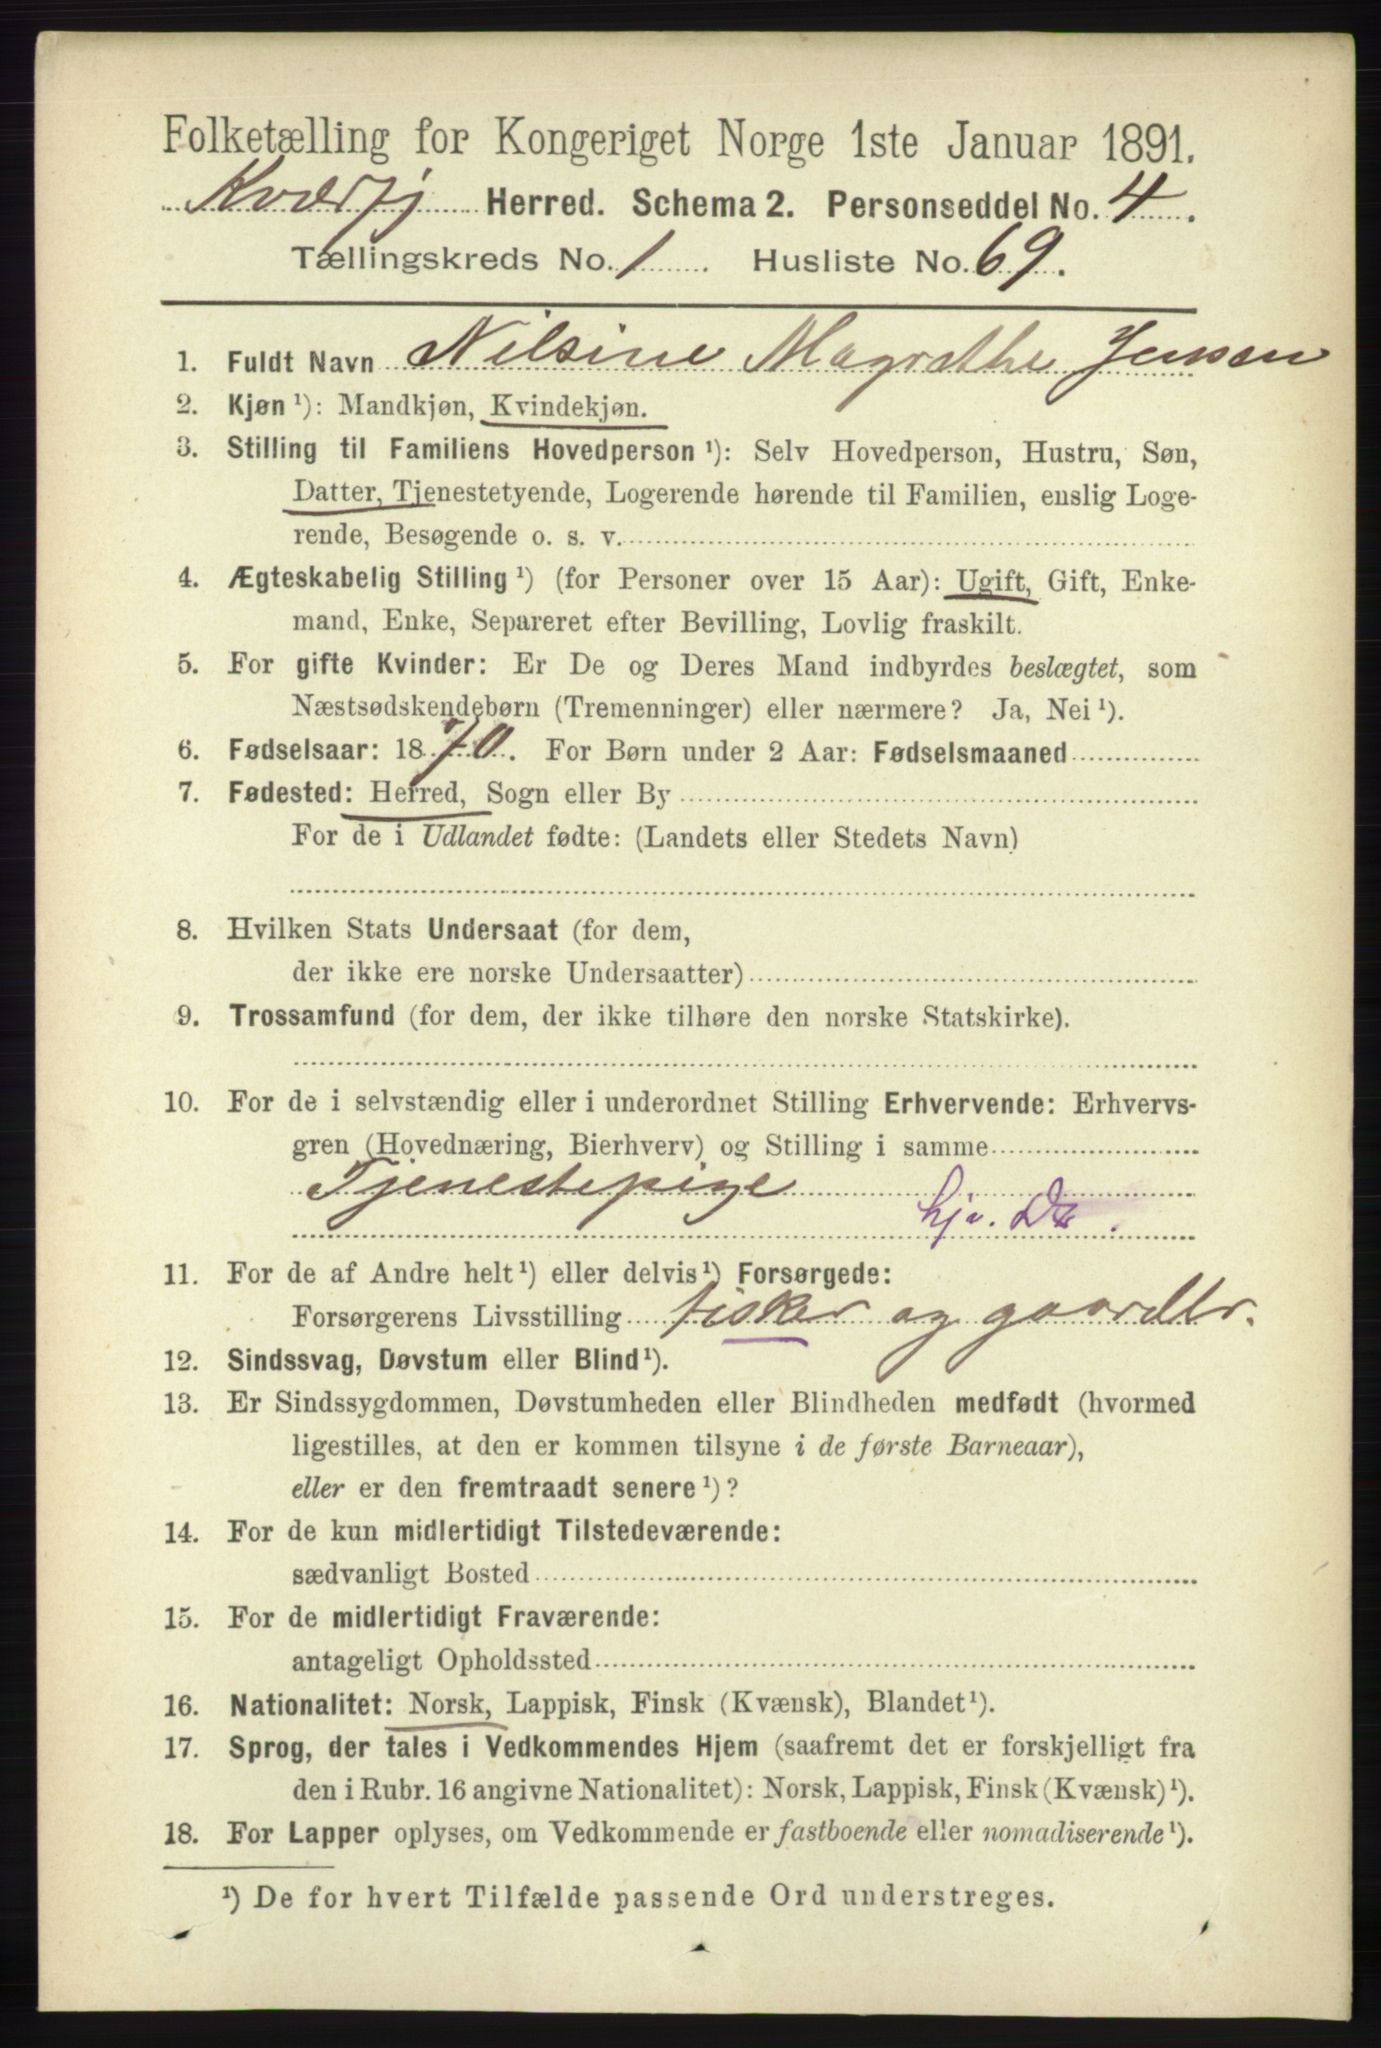 Folketælling for Kongeriget Norge 1ste Januar 1891.
Kværfj Herred. Schema 2. Personseddel No. 4.
Tællingskreds No. 1 Husliste No. 69.
1. Fuldt Navn Nilsine Magrethe Jensen
2. Kjøn ¹): Mandkjøn, Kvindekjøn.
3. Stilling til Familiens Hovedperson ¹): Selv Hovedperson, Hustru, Søn,
Datter, Tjenestetyende, Logerende hørende til Familien, enslig Loge-
rende, Besøgende o. s. v.
4. Ægteskabelig Stilling ¹) (for Personer over 15 Aar): Ugift, Gift, Enke-
mand, Enke, Separeret efter Bevilling, Lovlig fraskilt.
5. For gifte Kvinder: Er De og Deres Mand indbyrdes beslægtet, som
Næstsødskendebørn (Tremenninger) eller nærmere? Ja, Nei ¹).
6. Fødselsaar: 1870. For Børn under 2 Aar: Fødselsmaaned
7. Fødested: Herred, Sogn eller By
For de i Udlandet fødte: (Landets eller Stedets Navn)
8. Hvilken Stats Undersaat (for dem,
der ikke ere norske Undersaatter)
9. Trossamfund (for dem, der ikke tilhøre den norske Statskirke).
10. For de i selvstændig eller i underordnet Stilling Erhvervende: Erhvervs-
gren (Hovednæring, Bierhverv) og Stilling i samme
Tjenestepige
hjv.
11. For de af Andre helt ¹) eller delvis ¹) Forsørgede:
Forsørgerens Livsstilling fisker og gaardbr.
12. Sindssvag, Døvstum eller Blind ¹).
13. Er Sindssygdommen, Døvstumheden eller Blindheden medfødt (hvormed
ligestilles, at den er kommen tilsyne i de første Barneaar),
eller er den fremtraadt senere ¹)?
14. For de kun midlertidigt Tilstedeværende:
sædvanligt Bosted
15. For de midlertidigt Fraværende:
antageligt Opholdssted
16. Nationalitet: Norsk, Lappisk, Finsk (Kvænsk), Blandet ¹).
17. Sprog, der tales i Vedkommendes Hjem (saafremt det er forskjelligt fra
den i Rubr. 16 angivne Nationalitet): Norsk, Lappisk, Finsk (Kvænsk) ¹).
18. For Lapper oplyses, om Vedkommende er fastboende eller nomadiserende ¹).
¹) De for hvert Tilfælde passende Ord understreges.